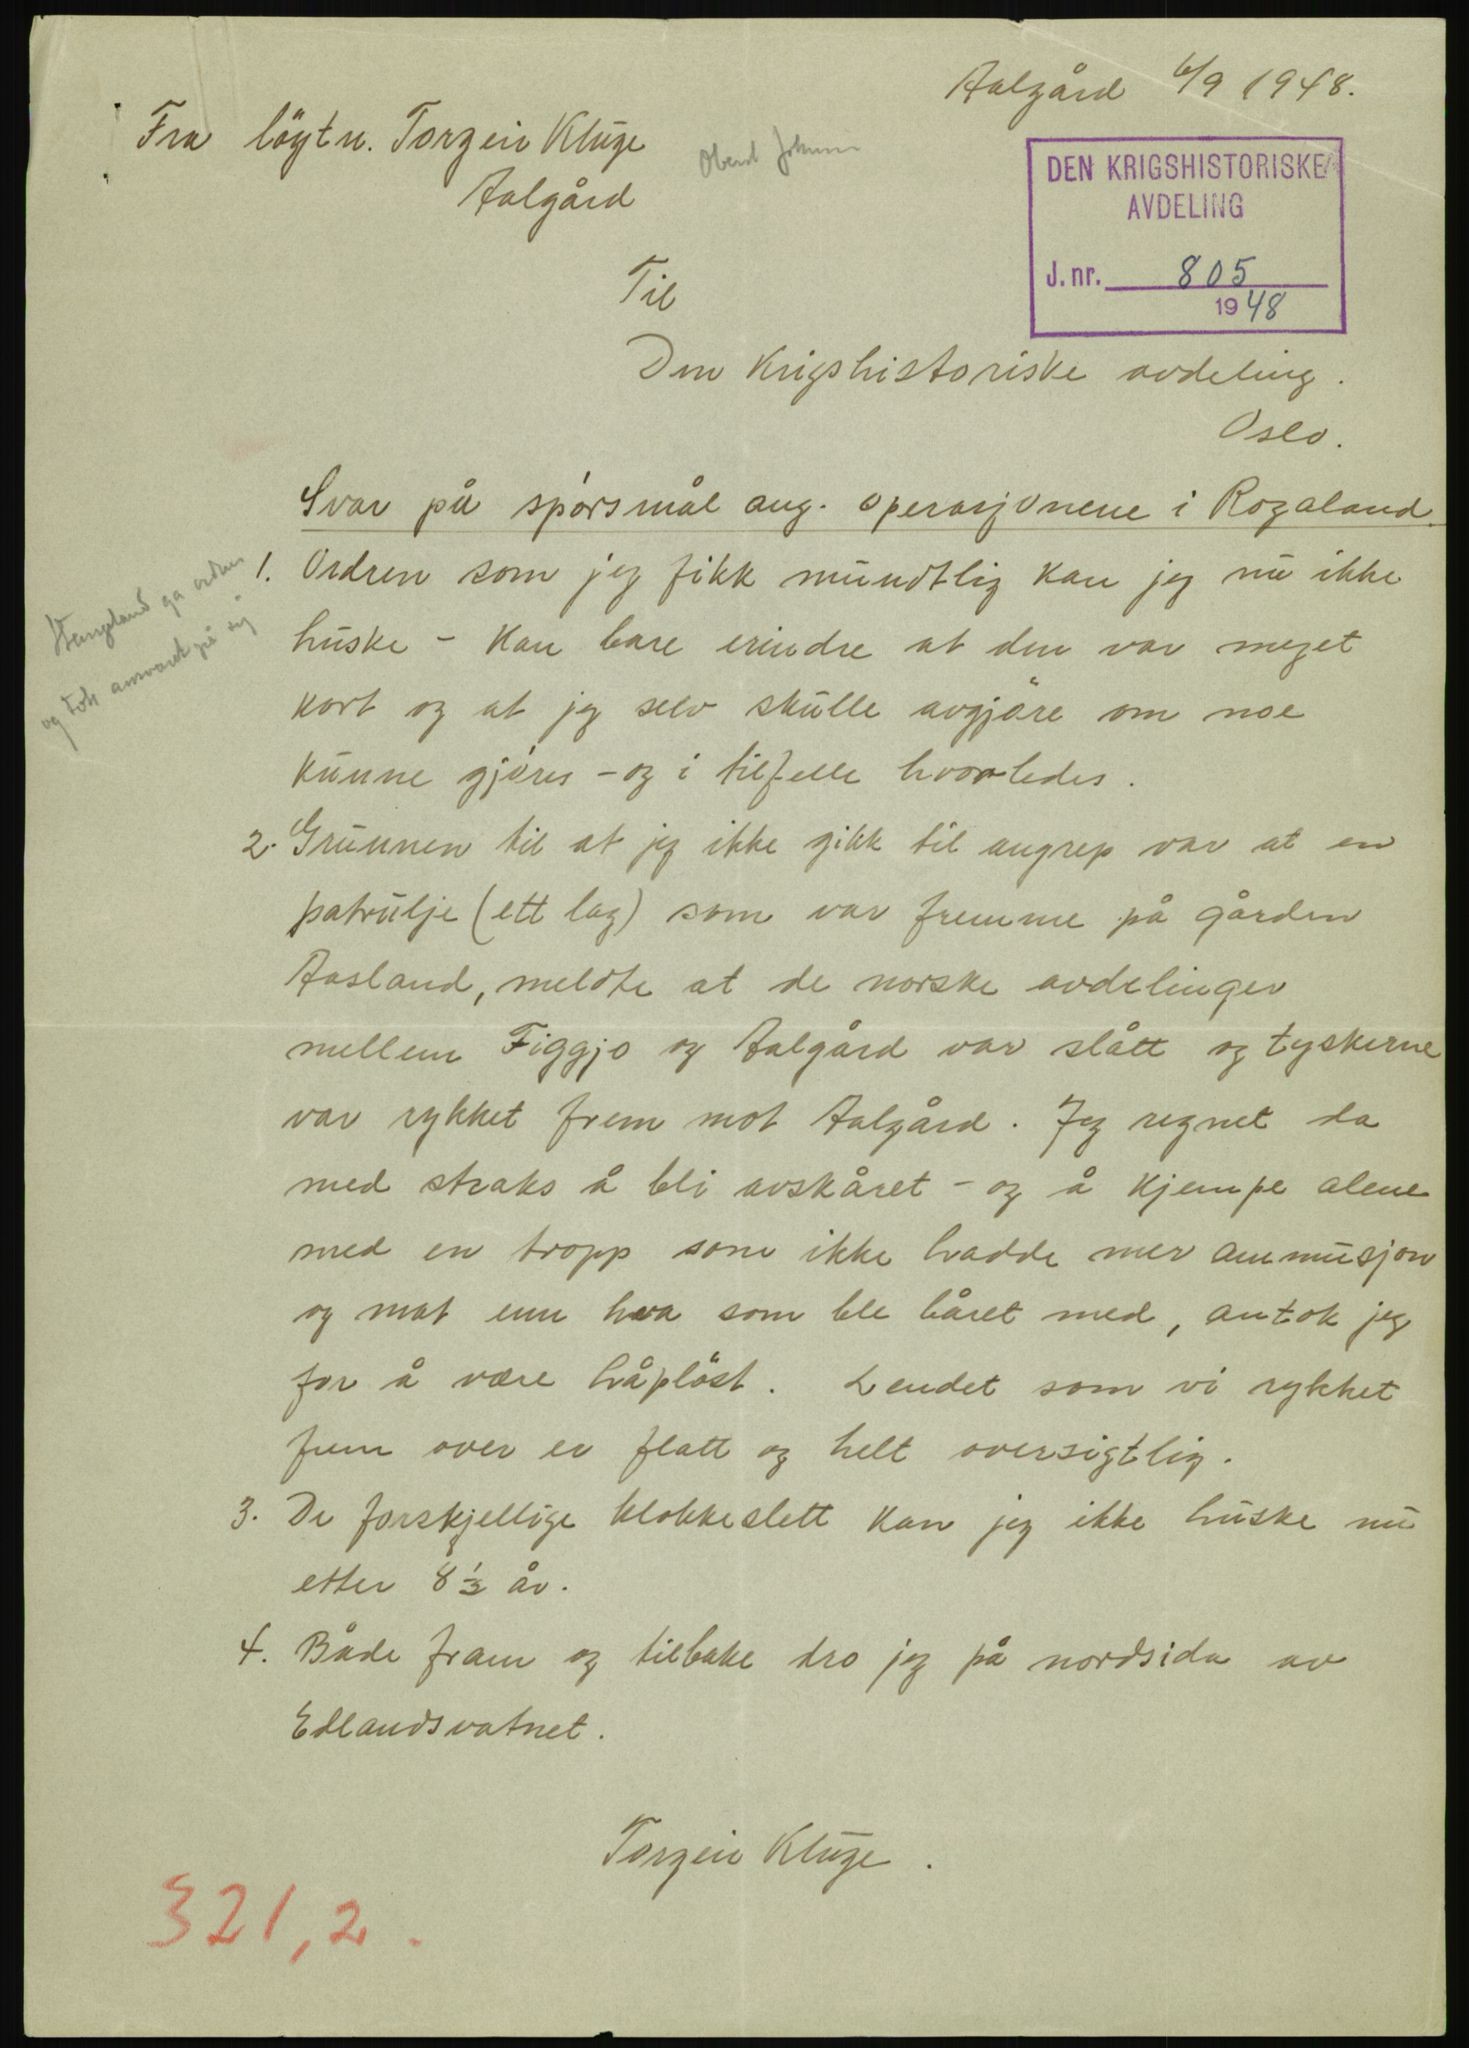 Aalgård 6/9 1948.
Fra löytn. Torgeir Kluge
Aalgård
DEN KRIGSHISTORISKE
AVDELING
J. nr. 805
1948
Til
Den Krigshistoriske avdeling.
Oslo.
Svar på spörsmål ang. operasjonene i Rogaland.
1. Ordren som jeg fikk mundtlig kan jeg nu ikke
huske - Kan bare erindre at den var meget
kort og at jeg selv skulle avgjöre om noe
kunne gjöres - og i tilfelle hvorledes.
ga ordren
og tok ansvaret på sig
2. Grunnen til at jeg ikke gikk til angrep var at en
patrulje (ett lag) som var fremme på gården
Aasland, meldte at de norske avdelinger
mellem Figgjo og Aalgård var slått og tyskerne
var rykket frem mot Aalgård. Jeg regnet da
med straks å bli avskåret - og å kjempe alene
med en tropp som ikke hadde mer ammusjon
og mat enn hva som ble båret med, antok jeg
for å være håplöst. Lendet som vi rykket
frem over er flatt og helt oversigtlig.
3. De forskjellige klokkeslett kan jeg ikke huske nu
etter 8 ½ år.
4. Både fram og tilbake dro jeg på nordsida av
Edlandsvatnet.
Torgeir Kluge.
321,2.